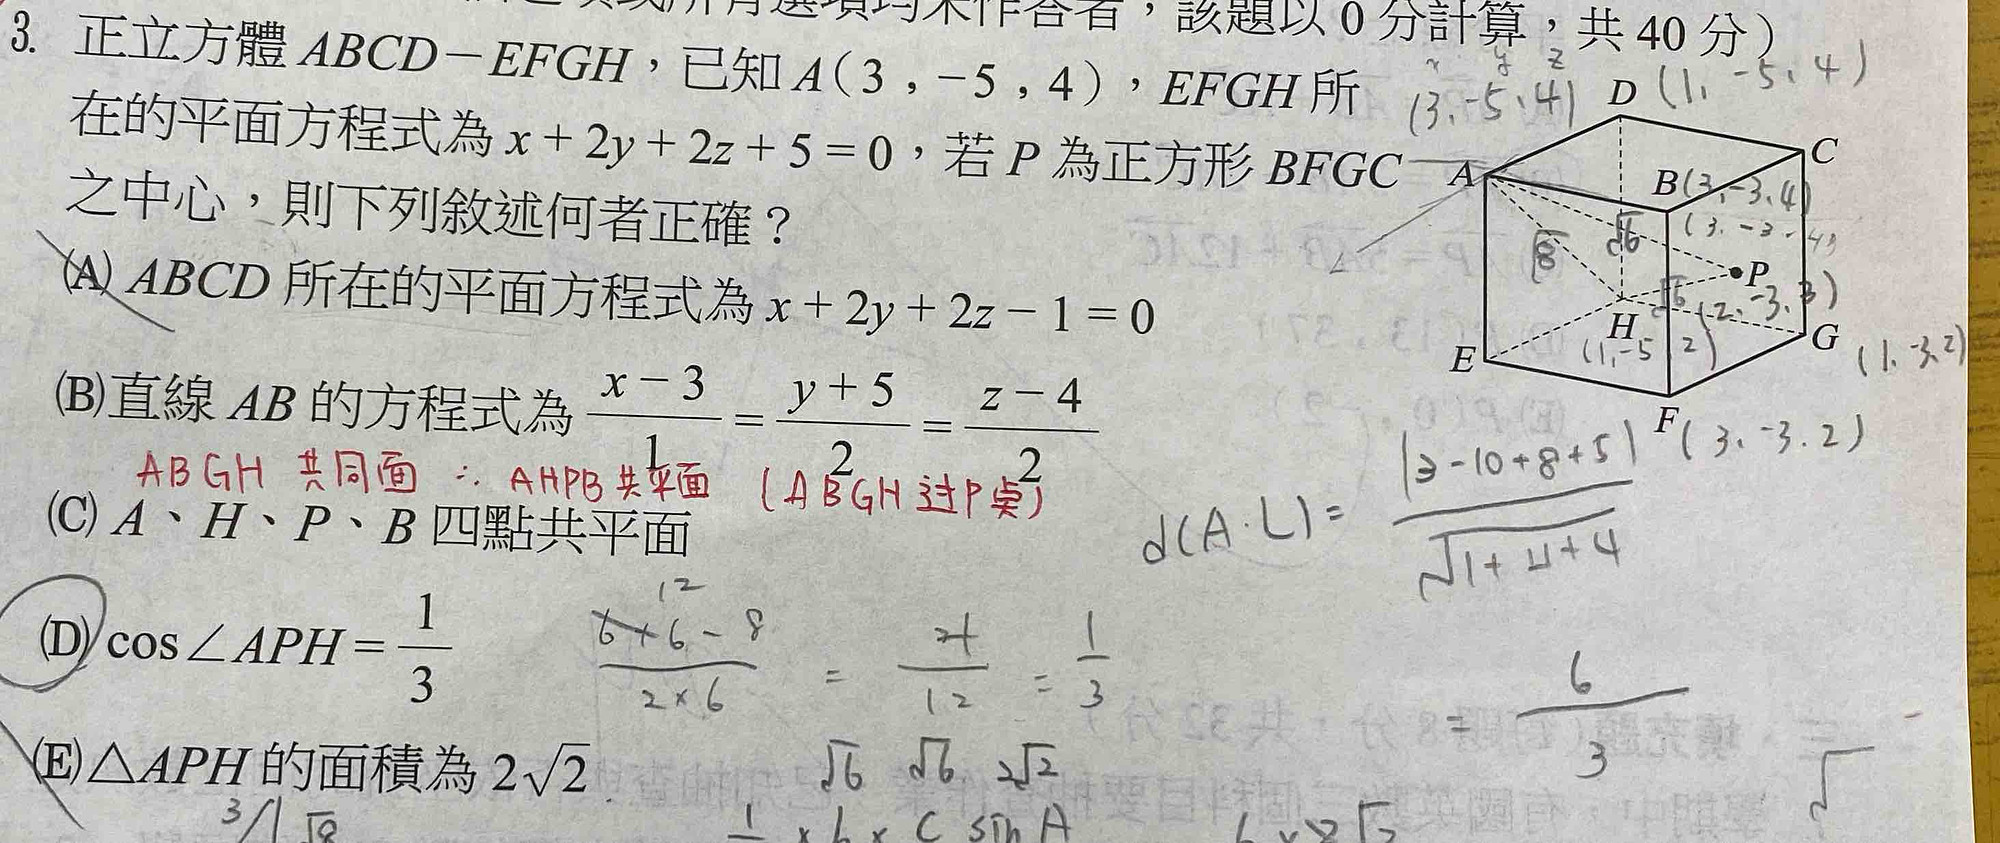 者,該題以 0 分計算,共 40 分)
3. 正立方體 ABCD-EFGH,已知 A(3,-5,4),EFGH 所
在的平面方程式為 x+2y+2z+5=0,若 P 為正方形 BFGC
之中心,則下列敘述何者正確?
(A) ABCD 所在的平面方程式為 x+2y+2z-1=0
(B)直線 AB 的方程式為 (x-3)/1 = (y+5)/2 = (z-4)/2
ABGH 共同面 ∴ AHPB 共平面 (ABGH 过P桌)
(C) A、H、P、B 四點共平面
(D) cos∠APH = 1/3
12
6+6-8 / 2×6 = 4/12 = 1/3
(E)△APH 的面積為 2√2
√6 √6 2√2
x y z
(3,-5,4)
D (1,-5,4)
C
A
B(3,-3,4)
(3.-3.4)
√8
√6
P
√6
(2,-3,3)
H
(1,-5,2)
G (1.-3.2)
E
F (3.-3.2)
d(A.L) = |3-10+8+5| / √1+4+4
= 6/3